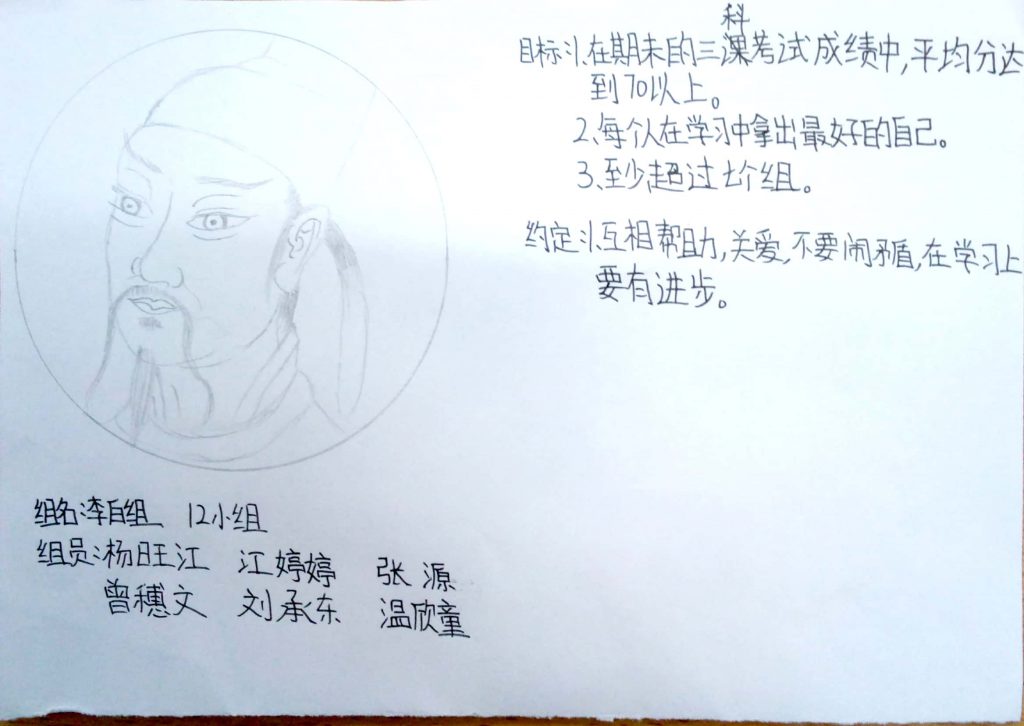 科
目标:1、在期末的三课考试成绩中,平均分达
到70以上。
2、每个人在学习中拿出最好的自己。
3、至少超过七个组。
约定:1、互相帮助,关爱,不要闹矛盾,在学习上
要有进步。
组名:李白组 12小组
组员:杨旺江 江婷婷 张源
曾穗文 刘承东 温欣童